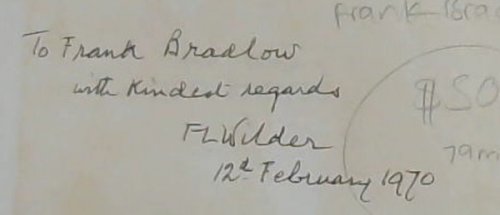 To Frank Bradlow
with kindest regards
FL Wilder
12th February 1970
Frank
$50